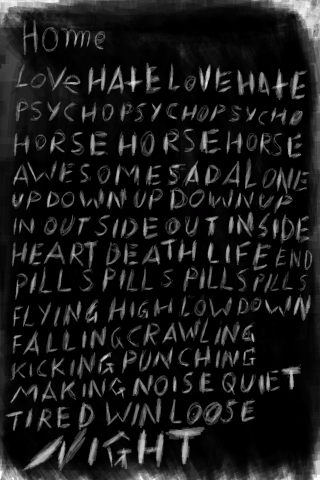 Home
LoVe HATE LOVE HATE
PSYCHOPSYCHOPSYCHO
HORSE HORSE HORSE
AWESOMESADALONE
UPDOWNUPDOWNUP
IN OUTSIDE OUT INSIDE
HEART DEATH LIFE END
PILLS PILLS PILLS PILLS
FLYING HIGH LOW DOWN
FALLINGCRAWLING
KICKING PUNCHING
MAKING NOISE QUIET
TIRED WIN LOOSE
NIGHT